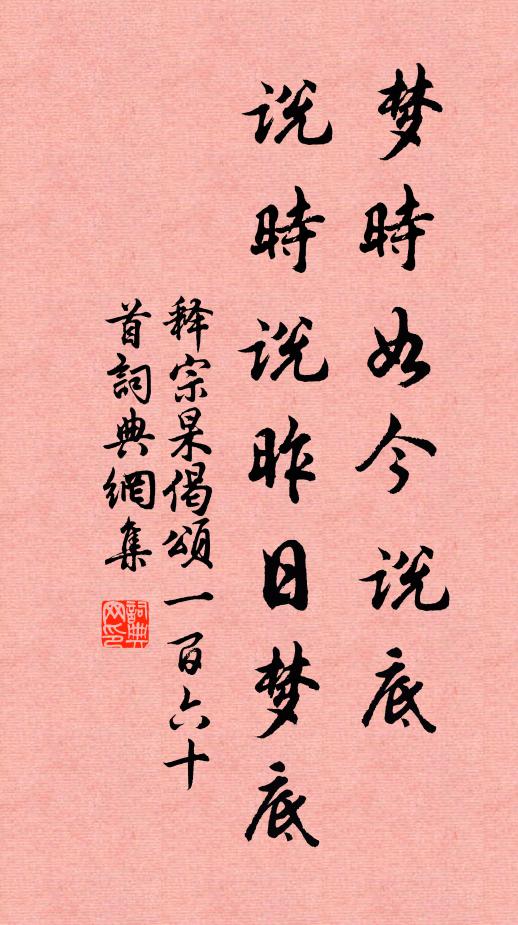 梦時如今说底
说時说昨日梦底
释宗杲偈頌一百六十
首詞典網集
詞典网印